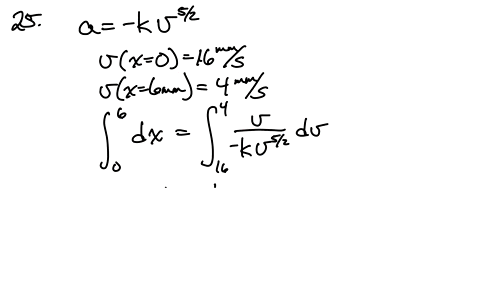 25. a = -kv^{5/2}
v(x=0) = 16 mm/s
v(x=6mm) = 4 mm/s
∫_0^6 dx = ∫_{16}^4 \frac{v}{-kv^{5/2}} dv